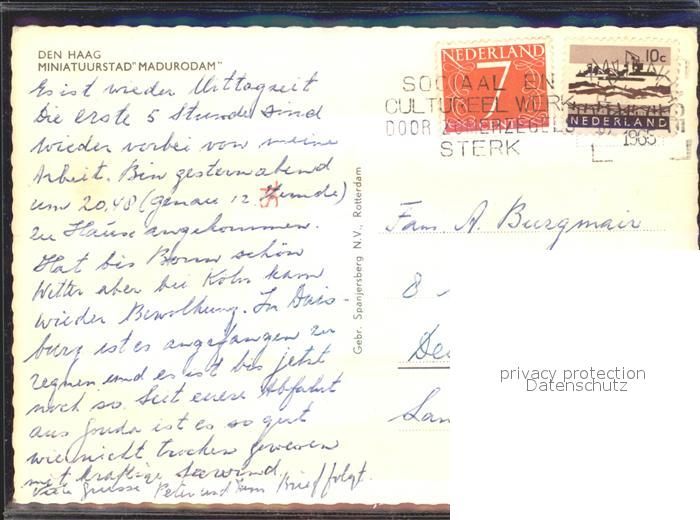 DEN HAAG
MINIATUURSTAD "MADURODAM"
Es ist wieder Mittagszeit
Die erste 5 Stunde sind
wieder vorbei von meine
Arbeit. Bin gesternabend
um 20,48 (genau 12 Stunde)
zu Hause angekommen.
Hat bis Bonn schön
Wetter aber bei Köln kam
wieder Bewolkung. In Duis-
burg ist es angefangen zu
regnen und es ist bis jetzt
noch so. Seit euere Abfahrt
aus Gouda ist es so gut
wie nicht trocken gewesen
mit kraftige Seewind.
Viele Grüsse Peter und Brief folgt.
Gebr. Spanjersberg N.V., Rotterdam
NEDERLAND
7
10c
NEDERLAND
SOCIAAL EN
CULTUREEL WERK
DOOR ZOMERZEGELS
STERK
1965
Fam. A. Burgmair
8
privacy protection
Datenschutz